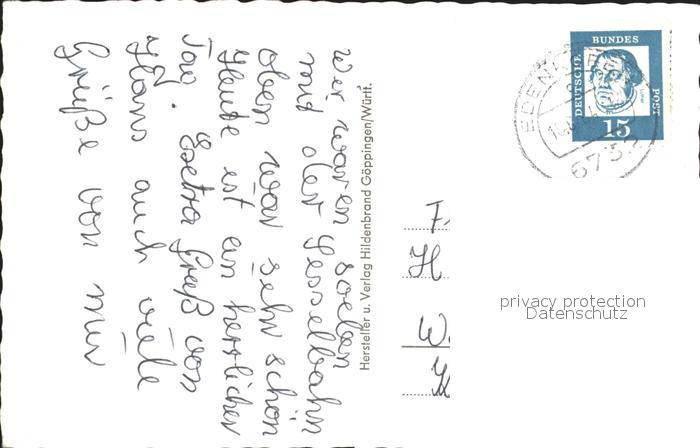 Wir waren soeben
mit der Sesselbahn
oben war sehr schön
Heute ist ein herrlicher
Tag. Extra Gruß von
Hans auch viele
Grüße von mir
Hersteller u. Verlag Hildenbrand Göppingen/Württ.
DEUTSCHE BUNDES POST
15
EDENKOBEN
6732
F
H
W
privacy protection
Datenschutz